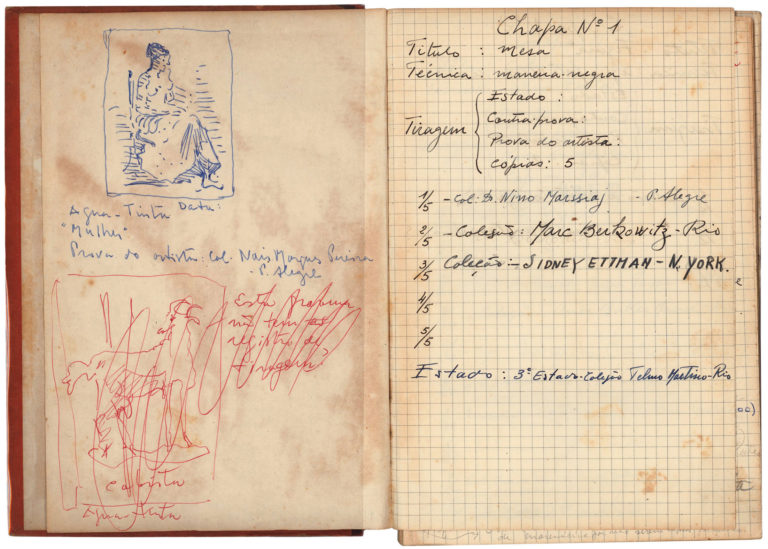 Agua-Tinta Data:
"Mulher"
Prova do artista: Col. Nais Marques Pereira
- P. Alegre
Esta gravura
não tem
registro de
tiragem
Agua-tinta
Chapa Nº 1
Titulo : mesa
Técnica : maneira-negra
Tiragem
Estado :
Contra-prova:
Prova do artista:
Cópias: 5
1/5 - Col. Dr. Nino Marssiaj - P. Alegre
2/5 - Coleção: Marc Berkowitz - Rio
3/5 Coleção:- SIDNEY ETTMAN - N. YORK.
4/5
5/5
Estado : 3º Estado-Coleção Telmo Martino-Rio